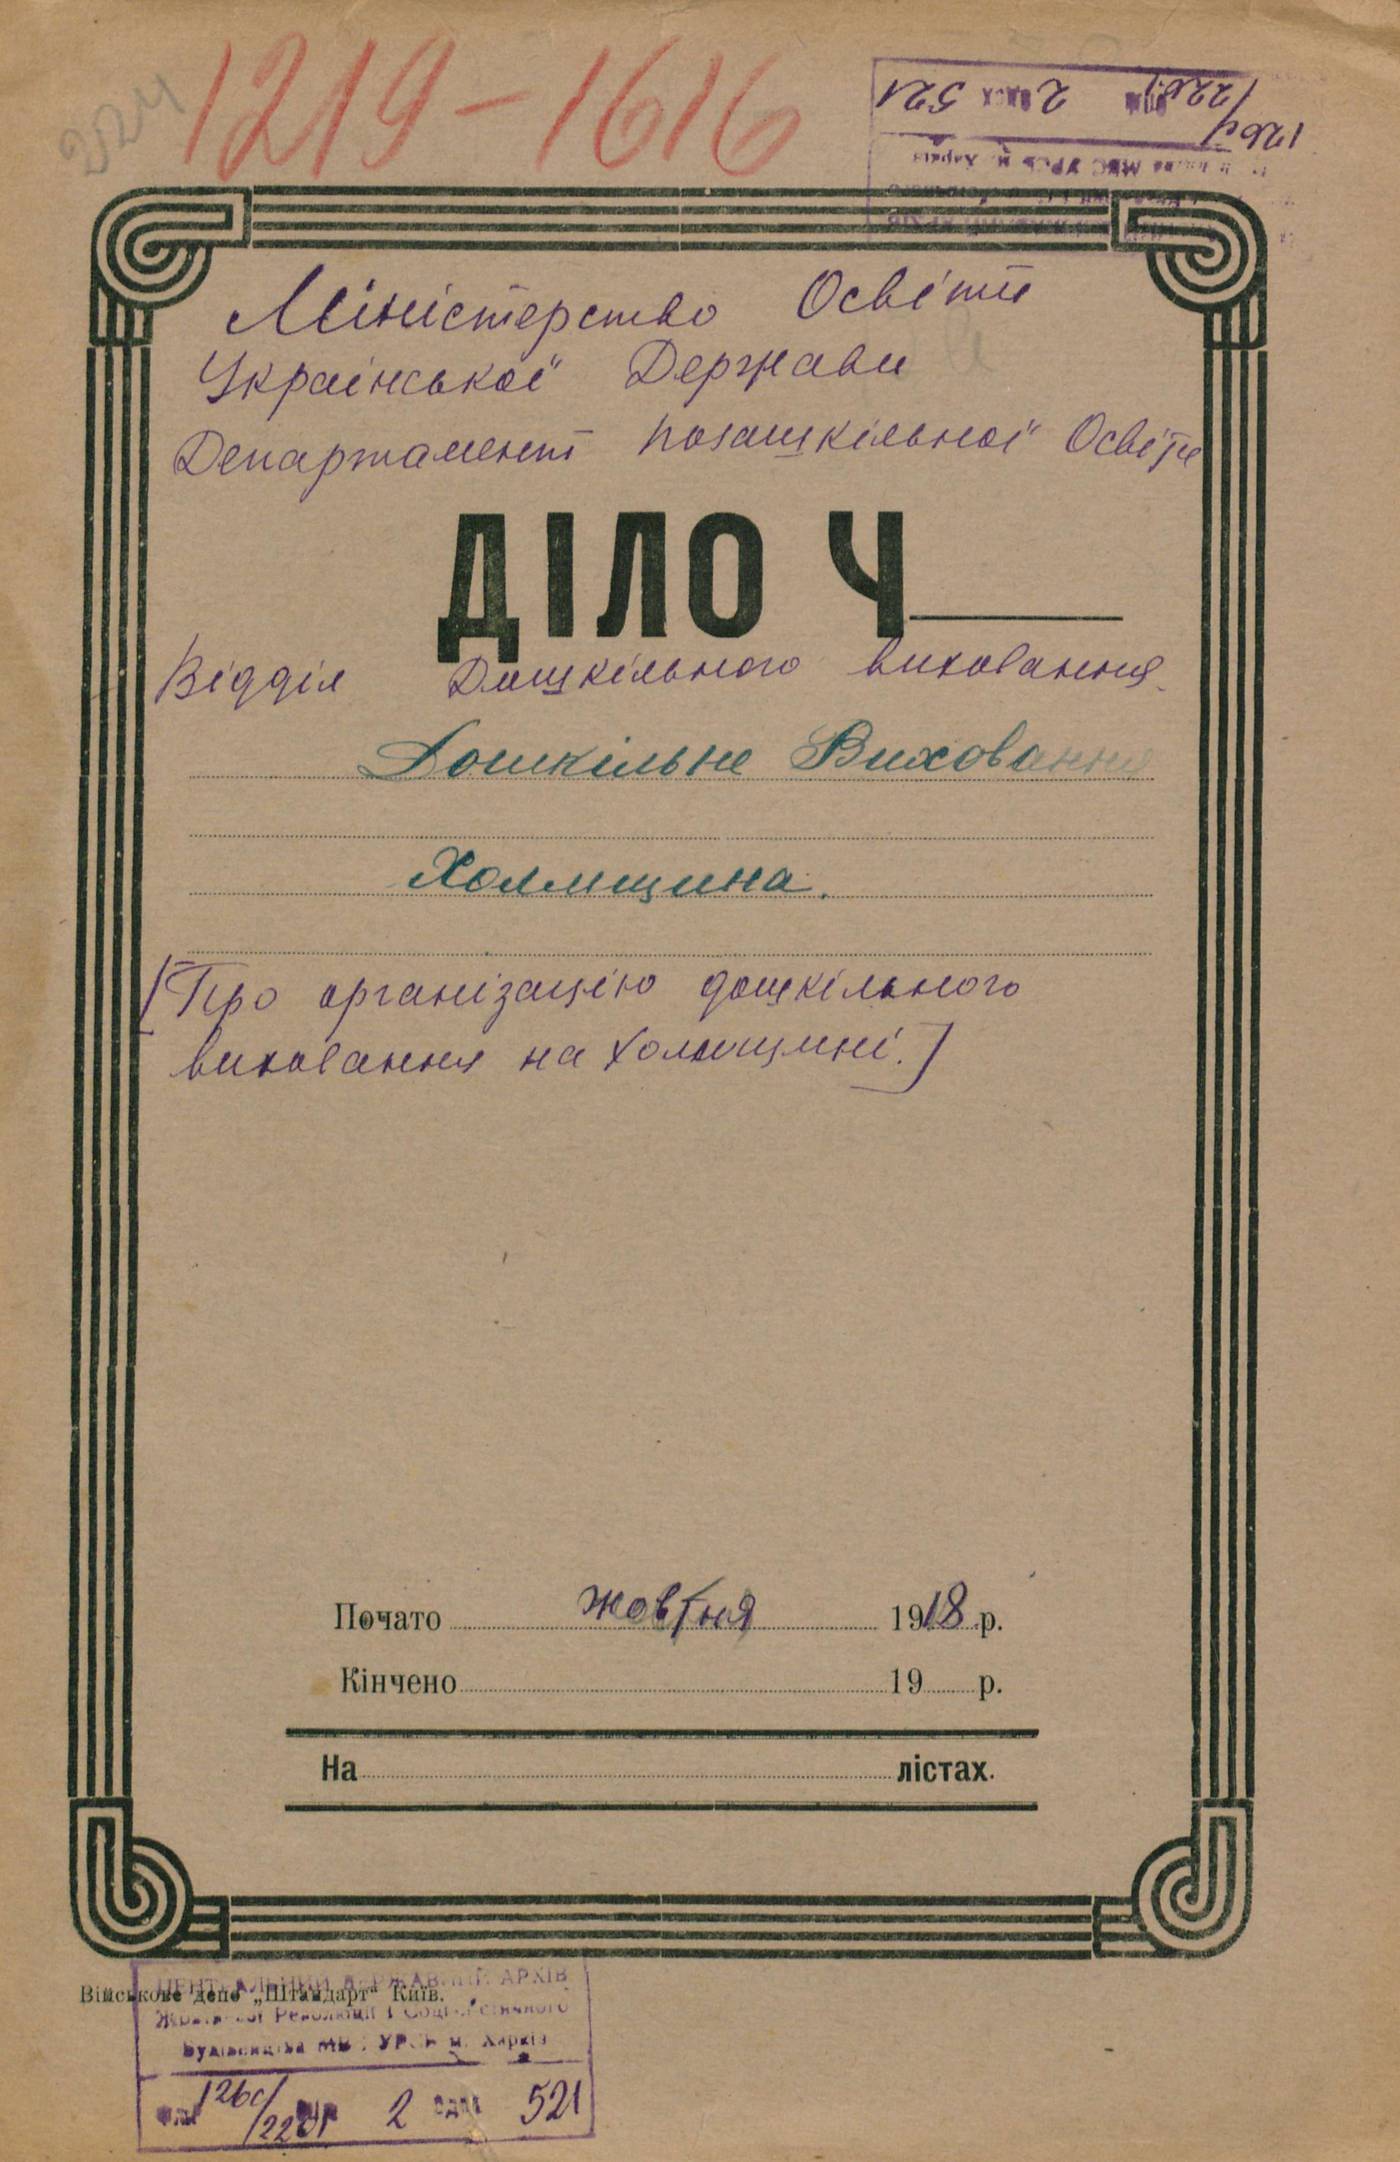 224
1219-1616
Міністерство Освіти
Української Держави
Департамент позашкільної Освіти
ДІЛО Ч
Відділ Дошкільного виховання
Дошкільне Виховання
Холмщина.
[Про організацію дошкільного
виховання на Холмщині.]
Почато жовтня 1918 р.
Кінчено 19 р.
На лістах.
Військове депо „Штандарт“ Київ.
ЦЕНТРАЛЬНИЙ ДЕРЖАВНИЙ АРХІВ
Жовтневої Революції і Соціалістичного
Будівництва МВС УРСР м. Харків
2 521